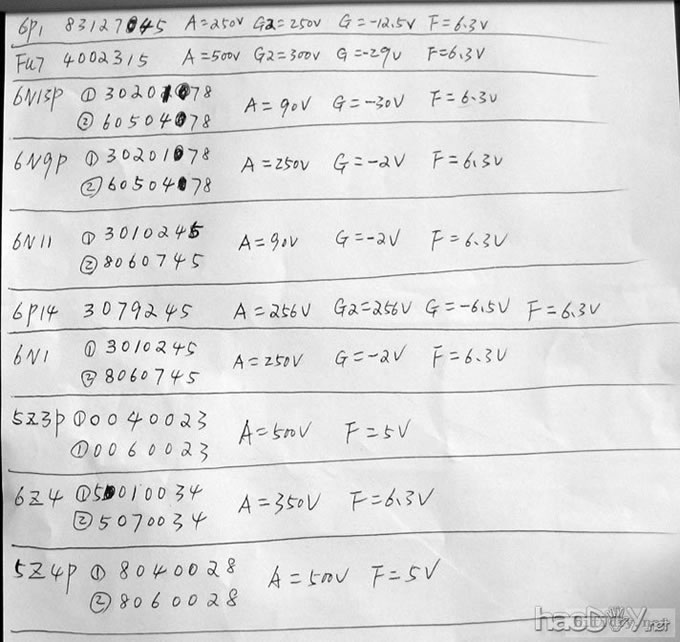 6P1 83127045 A=250V G2=250V G=-12.5V F=6.3V
Fu7 4002315 A=500V G2=300V G=-29V F=6.3V
6N13P ① 30201078 A=90V G=-30V F=6.3V
② 60504078
6N9P ① 30201078 A=250V G=-2V F=6.3V
② 60504078
6N11 ① 3010245 A=90V G=-2V F=6.3V
② 8060745
6P14 3079245 A=256V G2=256V G=-6.5V F=6.3V
6N1 ① 3010245 A=250V G=-2V F=6.3V
② 8060745
5Z3P ① 0040023 A=500V F=5V
① 0060023
6Z4 ① 5010034 A=350V F=6.3V
② 5070034
5Z4P ① 8040028 A=500V F=5V
② 8060028
haoDIY.net